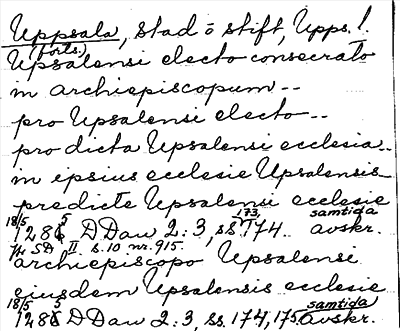 Uppsala, stad o stift, Upps. l.
(forts.)
Upsalensi electo consecrato
in archiepiscopum --
pro Upsalensi electo --
pro dicta Upsalensi ecclesia --
in ipsius ecclesie Upsalensis
predicte Upsalensis ecclesie
18/5 1285 DDan 2:3, ss. 173, 174. samtida avskr.
SD II s. 10 nr. 915.
archiepiscopo Upsalense
eiusdem Upsalensis ecclesie
18/5 1285 DDan 2:3, ss. 174, 175. samtida avskr.